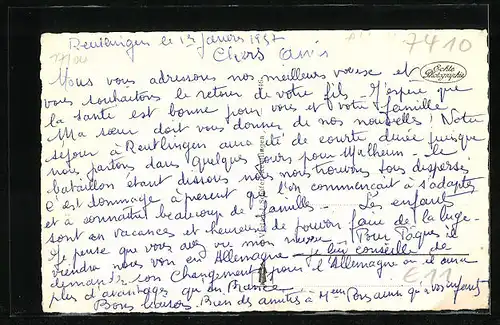 Reutlingen le 1er Janvier 1957
Chers Amis
7410
Echte Photographie
Nous vous adressons nos meilleurs voeux et
vous souhaitons le retour de votre fils - J'espère que
la santé est bonne pour vous et votre famille
Ma soeur doit vous donner de nos nouvelles! Notre
séjour à Reutlingen aura été de courte durée puisque
nous partons dans quelques jours pour Malheim - le
bataillon étant dissous nous nous trouvons tous dispersés
C'est dommage à présent que l'on commençait à s'adapter
et à connaître beaucoup de familles - Les enfants
sont en vacances et heureux de pouvoir faire de la luge -
Je pense que vous avez vu mon neveu - Pour Pâques il
viendra nous voir en Allemagne - je lui conseille de
demander son changement pour l'Allemagne où il aura
plus d'avantages qu'en France -
€11
Bons baisers Bien des amitiés à Mme Pons ainsi qu'à vos enfants